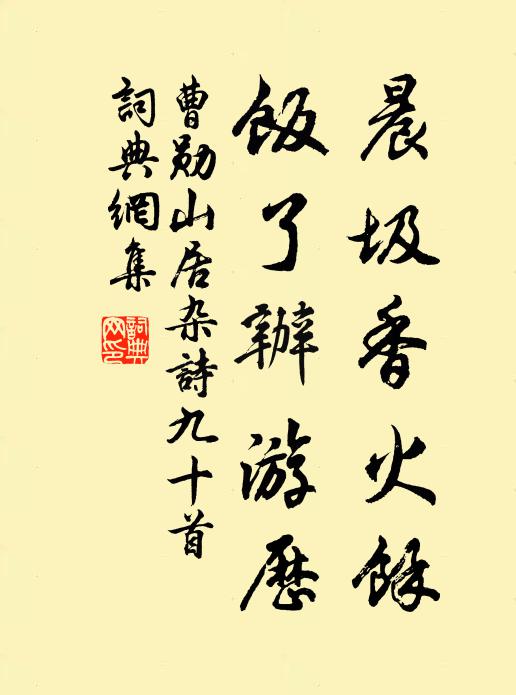 晨圾香火餘
飯了辦游歷
曹勋山居杂詩九十首
詞典網集
詞典网印